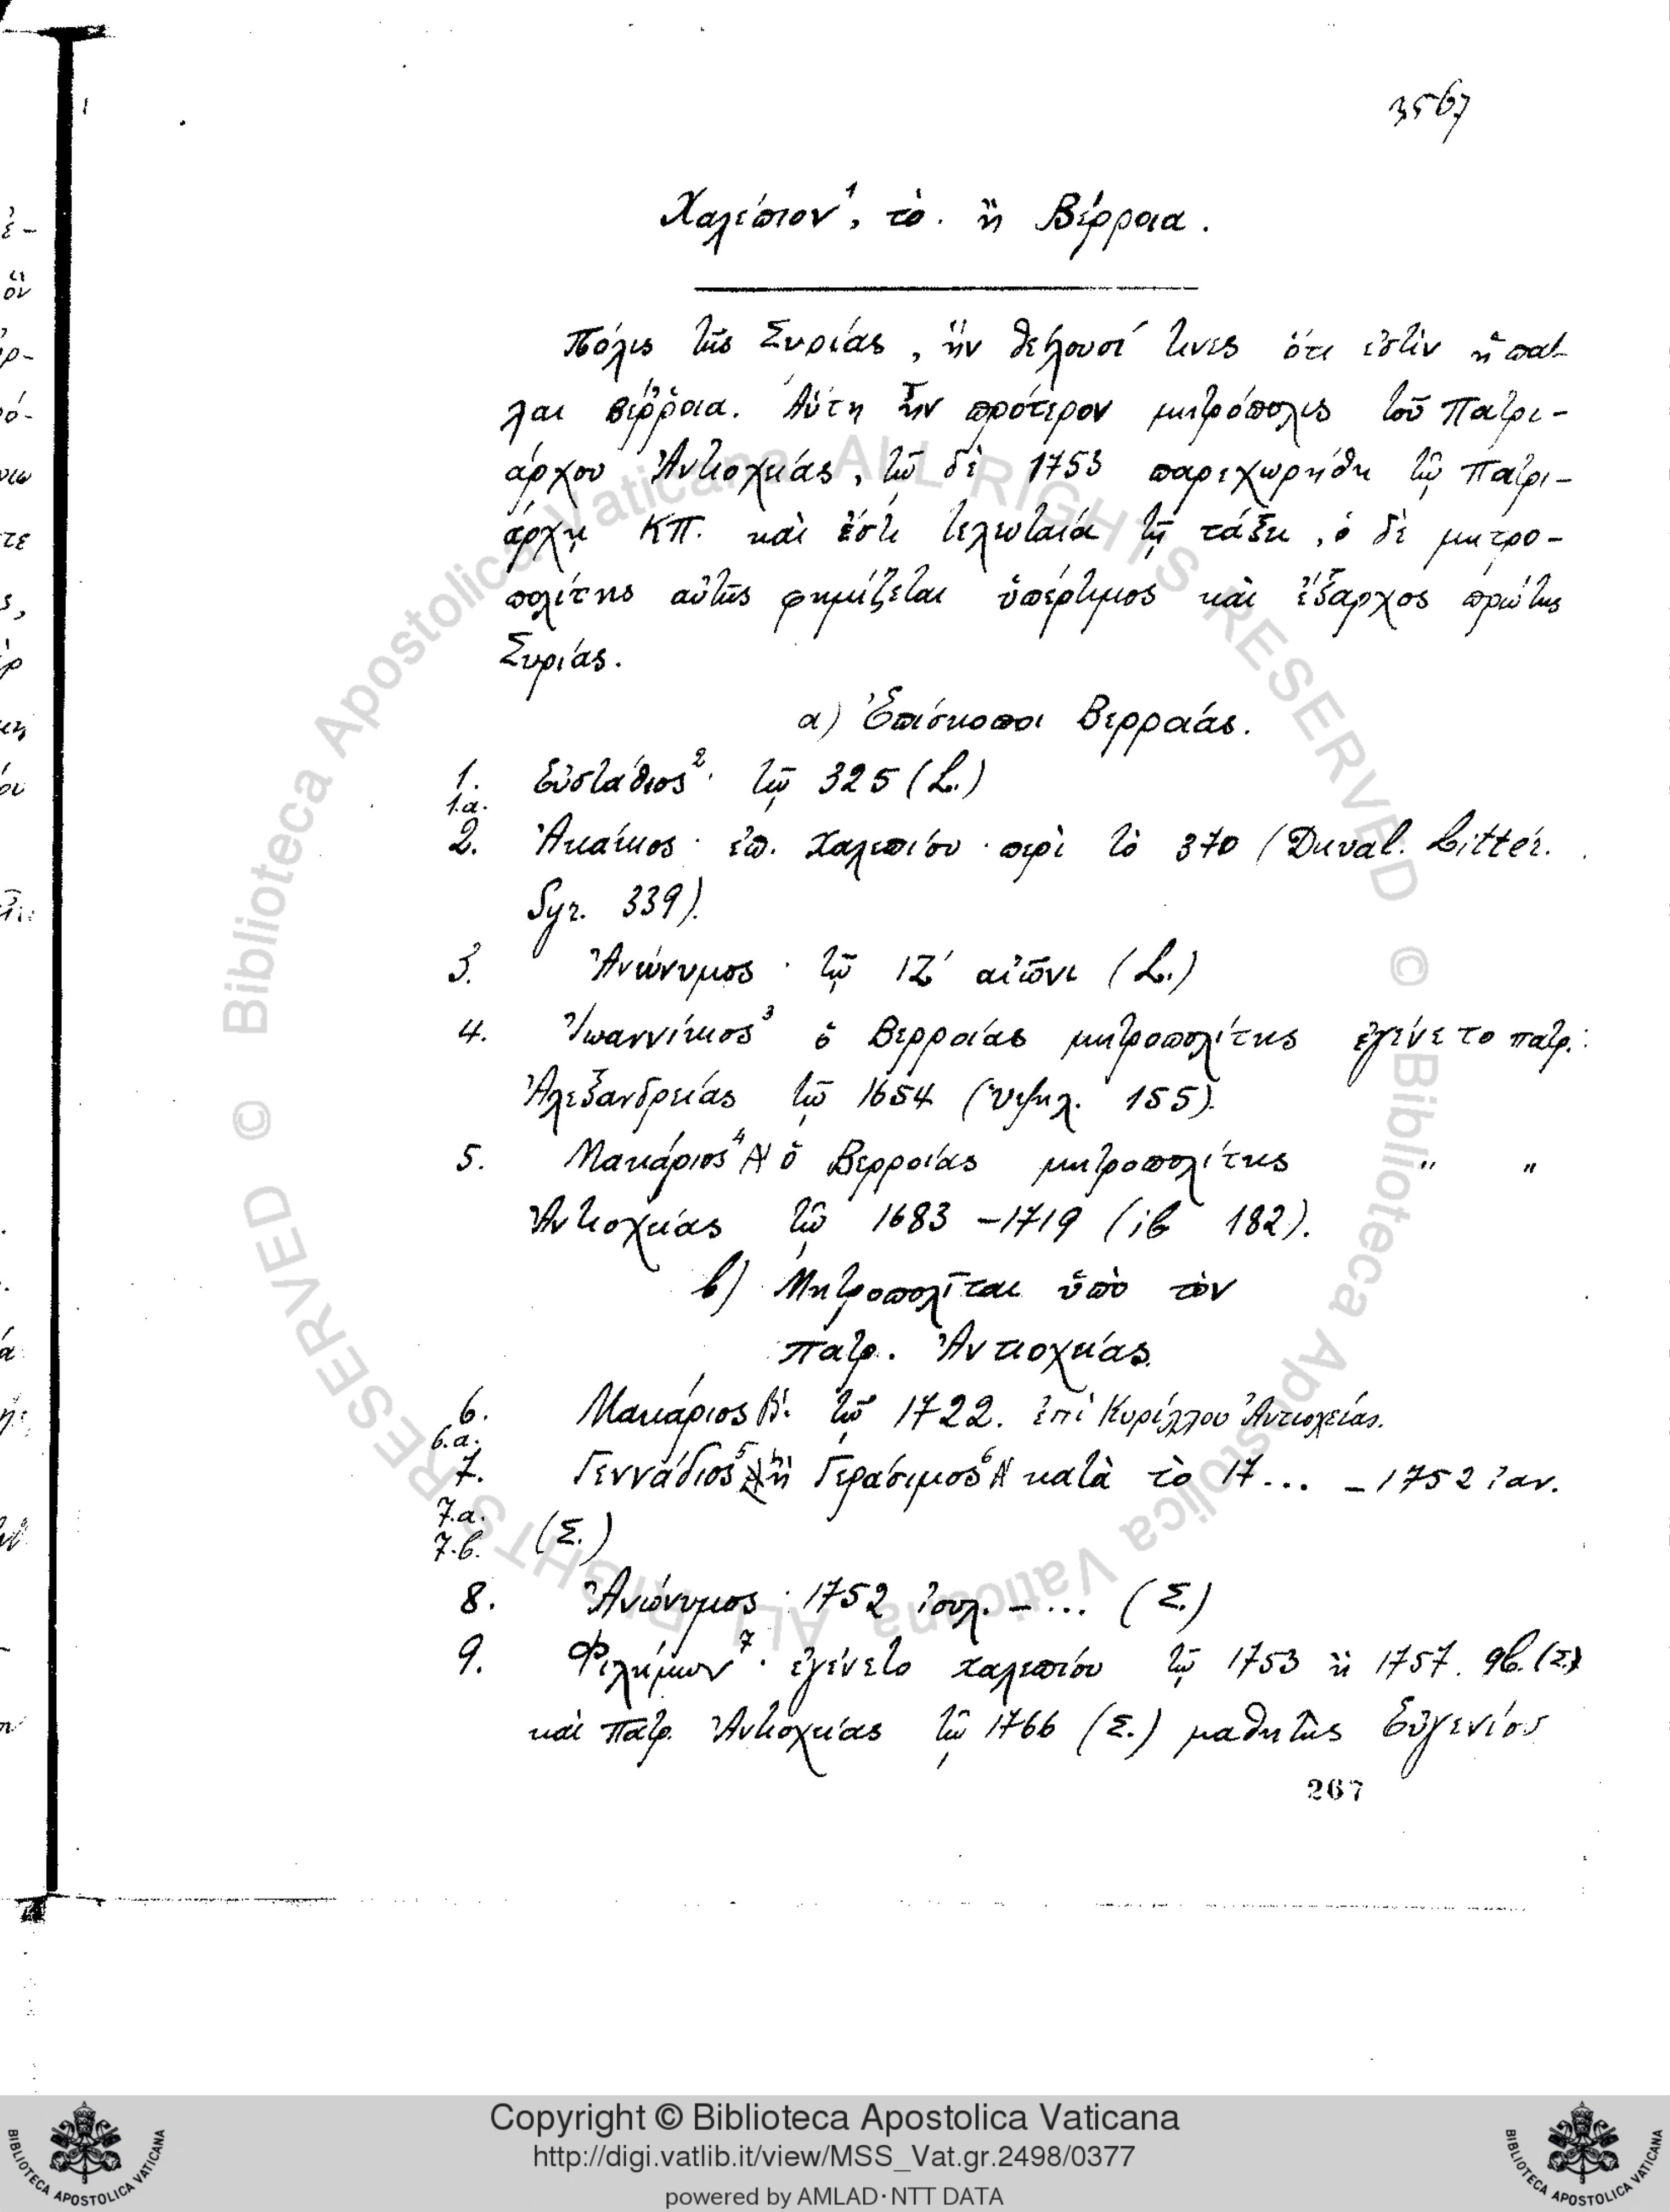 3567
Χαλέπιον¹, τὸ. ἢ Βέρροια.
Πόλις τῆς Συρίας, ἣν θέλουσί τινες ὅτι ἐστὶν ἡ πά-
λαι Βέρροια. Αὕτη ἦν πρότερον μητρόπολις τοῦ Πατρι-
άρχου Ἀντιοχείας, τῷ δὲ 1753 παρεχωρήθη τῷ Πατρι-
άρχῃ ΚΠ. καὶ ἔστι τελευταία τῇ τάξει, ὁ δὲ μητρο-
πολίτης αὐτῆς φημίζεται ὑπέρτιμος καὶ ἔξαρχος πρώτης
Συρίας.
α) Ἐπίσκοποι Βερροίας.
1. Εὐστάθιος²· τῷ 325 (L.)
1.α.
2. Ἀκάκιος· ἐπ. Χαλεπίου· περὶ τὸ 370 (Duval. Littér.
Syr. 339).
3. Ἀνώνυμος· τῷ ΙΖ′ αἰῶνι (L.)
4. Ἰωαννίκιος³ ὁ Βερροίας μητροπολίτης ἐγένετο πατρ.
Ἀλεξανδρείας τῷ 1654 (Ὑψηλ. 155).
5. Μακάριος⁴ Α′ ὁ Βερροίας μητροπολίτης " "
Ἀντιοχείας τῷ 1683 – 1719 (ib 182).
b) Μητροπολῖται ὑπὸ τὸν
πατρ. Ἀντιοχείας.
6. Μακάριος Β′. τῷ 1722. ἐπὶ Κυρίλλου Ἀντιοχείας.
6.α.
7. Γεννάδιος⁵ ἢ Γεράσιμος⁶ Α′ κατὰ τὸ 17... – 1752 ἰαν.
7.α.
7.b. (Σ.)
8. Ἀνώνυμος· 1752 ἰουλ. – ... (Σ.)
9. Φιλήμων⁷· ἐγένετο Χαλεπίου τῷ 1753 ἢ 1757. 9b. (Σ.)
καὶ πατρ. Ἀντιοχείας τῷ 1766 (Σ.) μαθητὴς Εὐγενίου
267
© Biblioteca Apostolica Vaticana ALL RIGHTS RESERVED © Biblioteca Apostolica Vaticana ALL RIGHTS RESERVED
Copyright © Biblioteca Apostolica Vaticana
http://digi.vatlib.it/view/MSS_Vat.gr.2498/0377
powered by AMLAD·NTT DATA
BIBLIOTECA APOSTOLICA VATICANA
BIBLIOTECA APOSTOLICA VATICANA